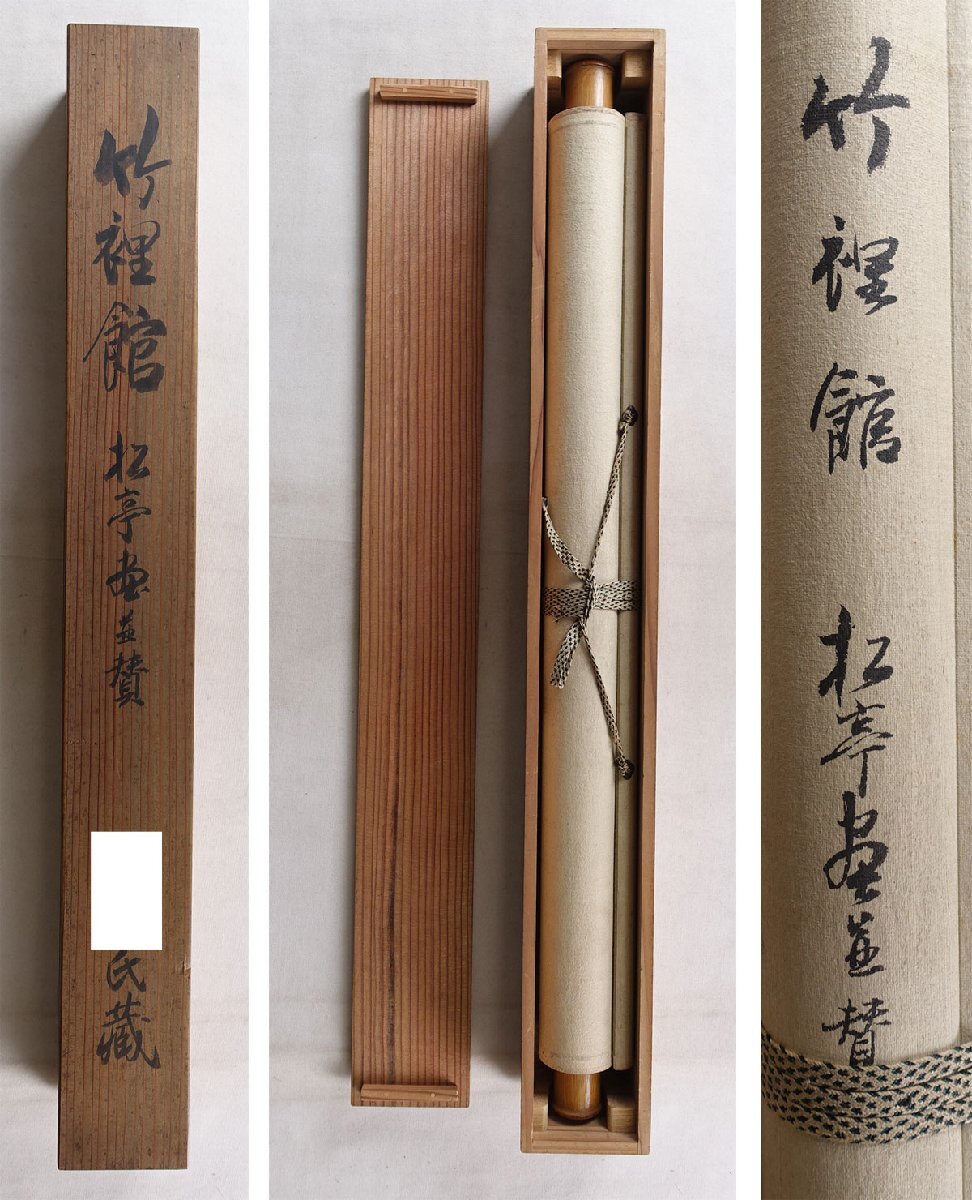 竹裡館
松亭画並賛
氏藏
竹裡館
松亭画並賛